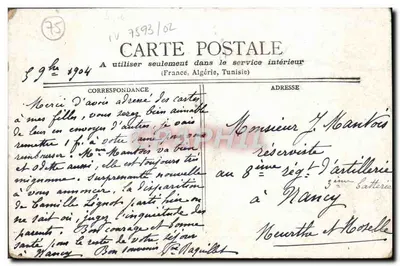 75
IV 7593/02
CARTE POSTALE
A utiliser seulement dans le service intérieur
(France, Algérie, Tunisie)
5 9bre 1904
CORRESPONDANCE
Merci d'avoir adressé des cartes
à mes filles, vous serez bien aimable
de leur en envoyer d'autres, je vais
remettre 1 f. à votre pour vous
rembourser. Mme Mantois va bien
et Odette aussi, elle est toujours très
mignonne. Surprenante nouvelle
à vous annoncer, la disparition
de Camille Lignot parti hier, on
ne sait où, jugez l'inquiétude des
parents. Bon courage et bonne
santé pour le reste de votre séjour
à Nancy. Bon souvenir
ADRESSE
Monsieur J. Mantois
réserviste
au 8ème régt d'artillerie
3ème batterie
à Nancy
Meurthe et Moselle